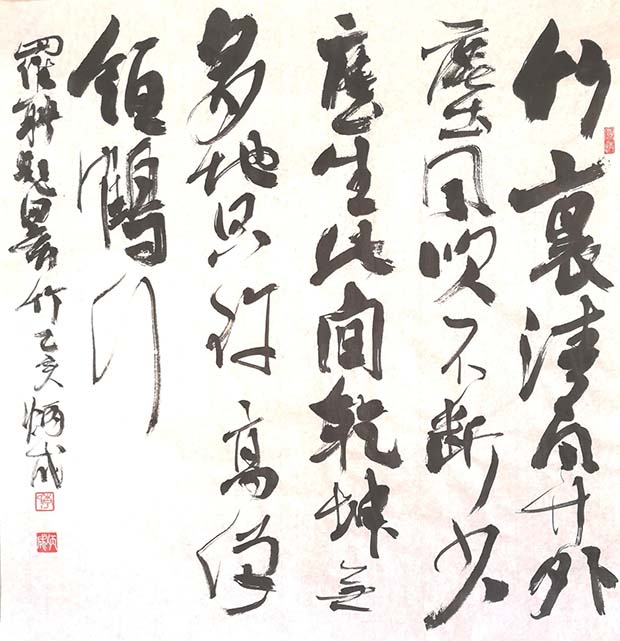 竹裏清風竹外
塵風吹不斷少
塵生此間乾坤無
多地只許高僧
領鶴行
羅聘題墨竹乙亥炳成